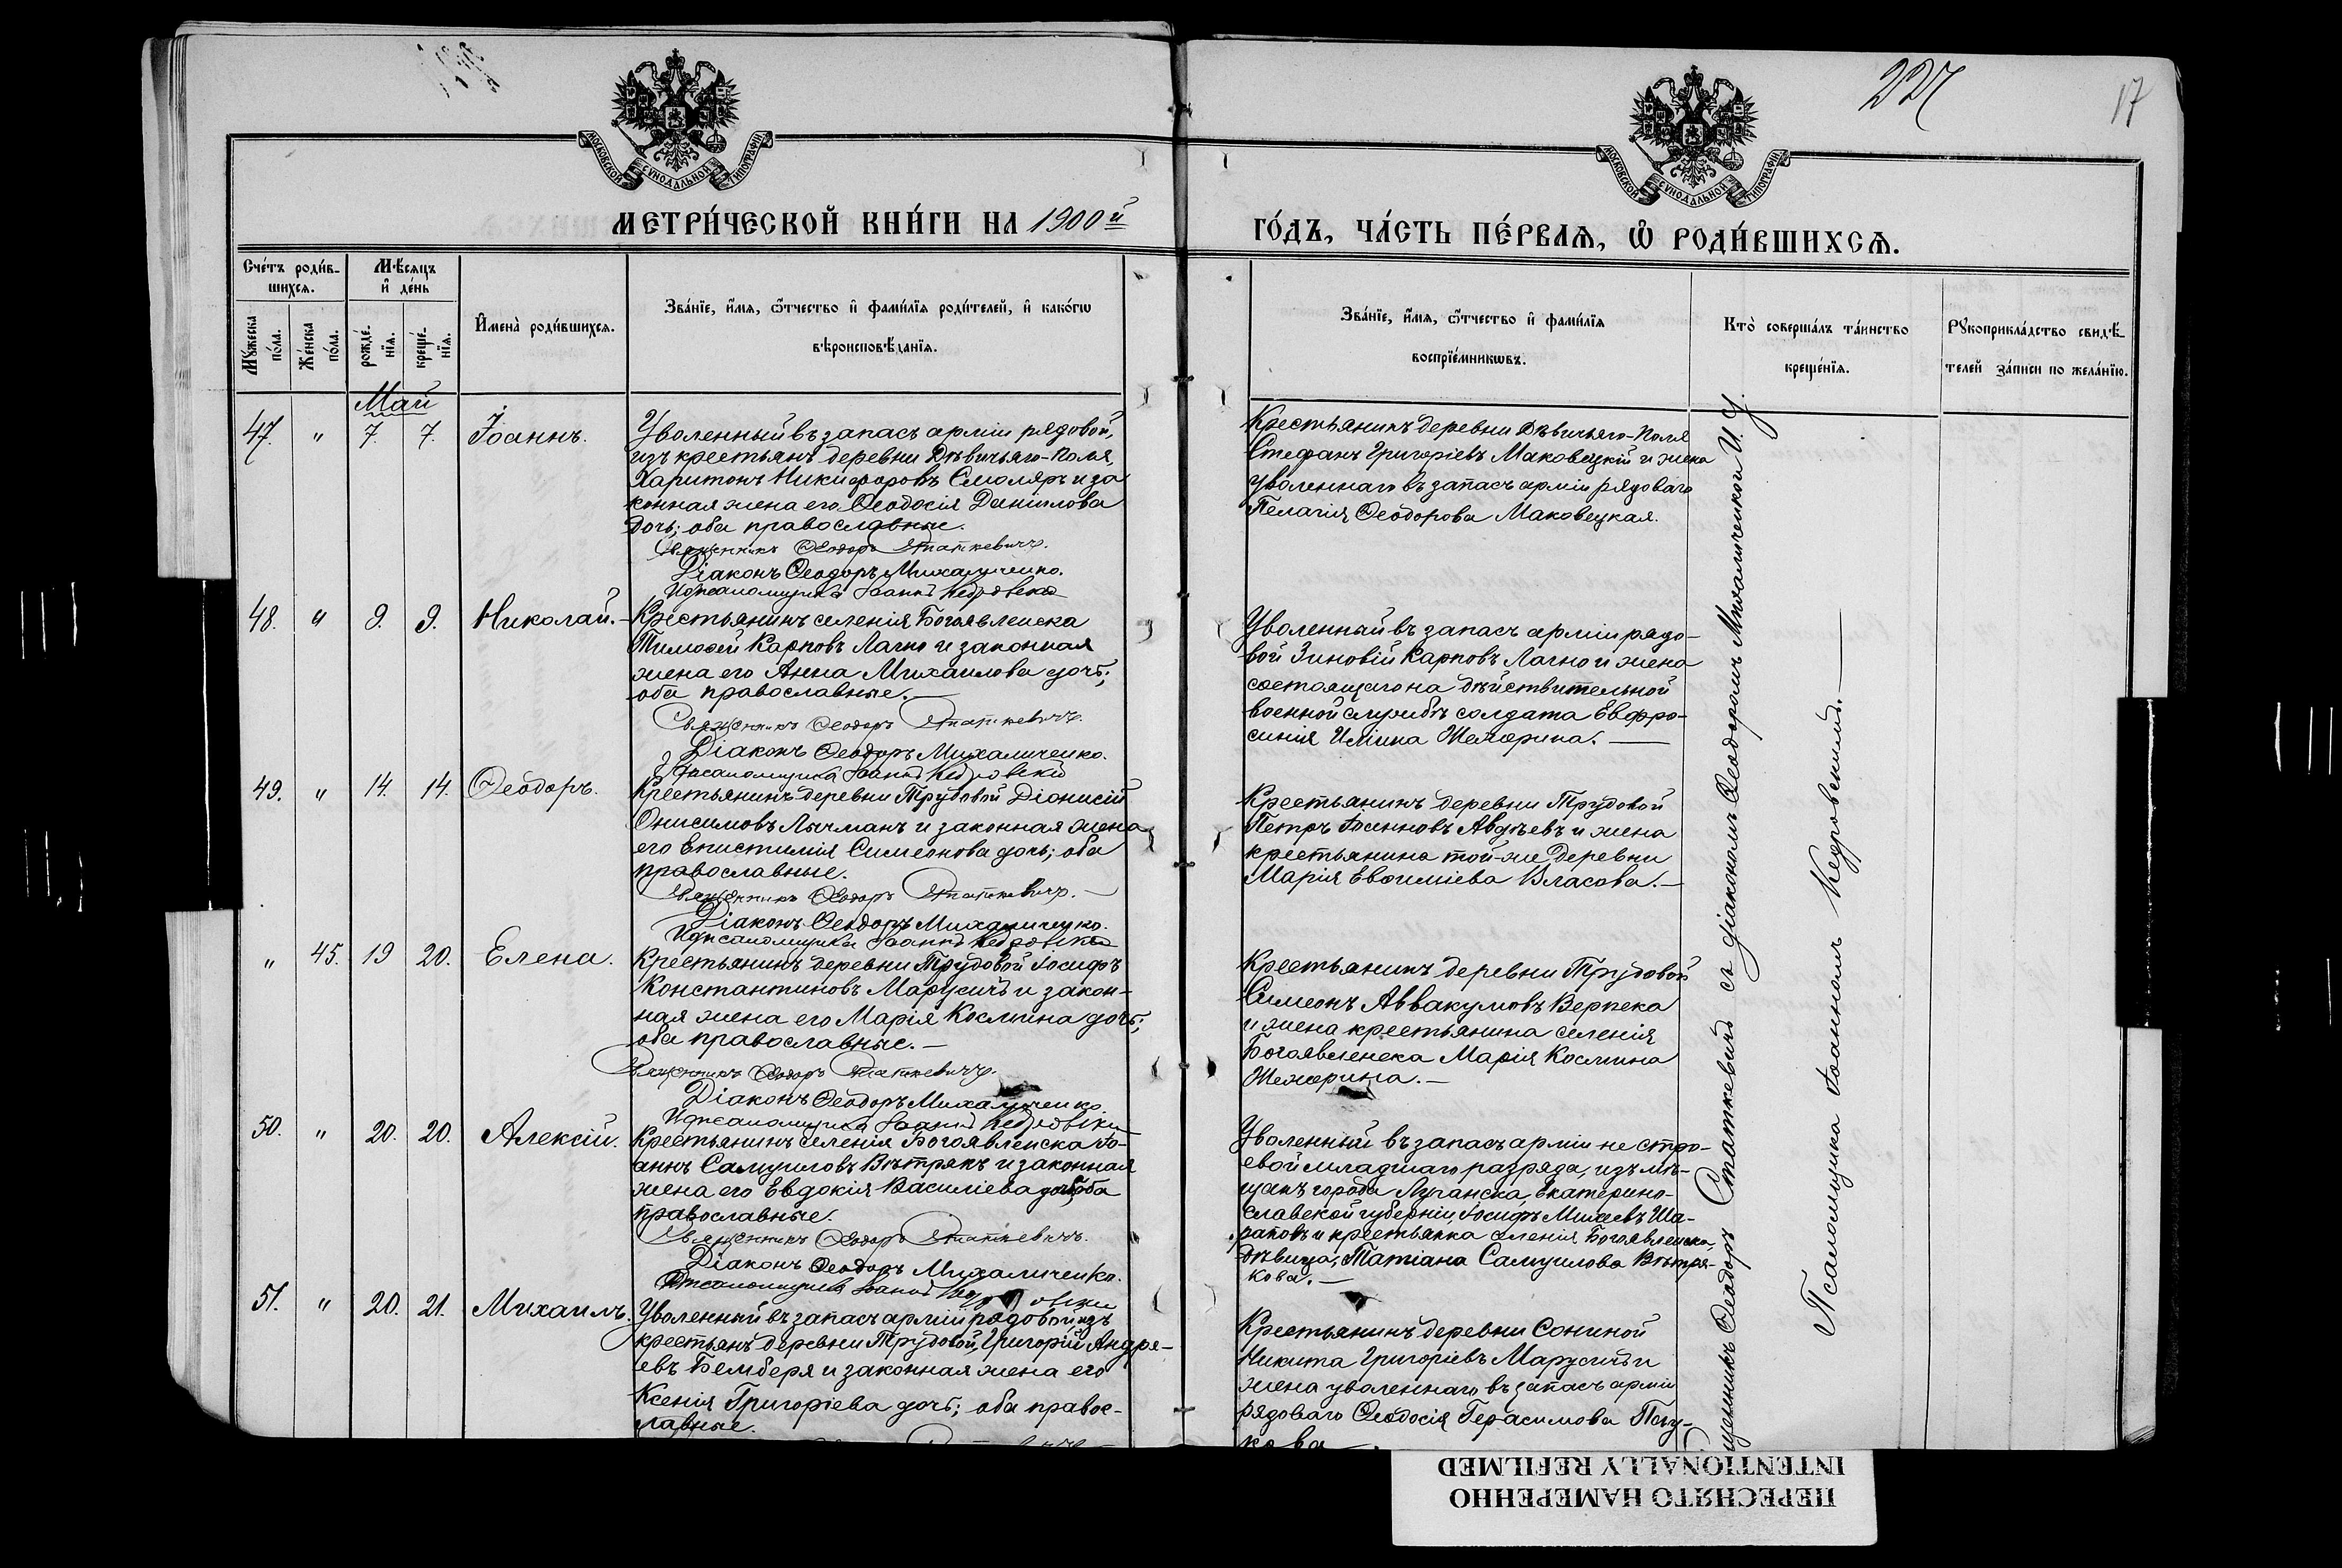 227
17
МОСКОВСКОЙ СѴНОДАЛЬНОЙ ТИПОГРАФІИ
МОСКОВСКОЙ СѴНОДАЛЬНОЙ ТИПОГРАФІИ
МЕТРИ́ЧЕСКОЙ КНИ́ГИ НА 1900й
ГО́ДЪ, ЧА́СТЬ ПЕ́РВАѦ, Ѡ҆ РОДИ́ВШИХСѦ.
Сче́тъ роди́в-
шихсѧ.
Мѣ́сѧцъ
и҆ де́нь
Мꙋ́жеска
по́ла.
Же́нска
по́ла.
рожде́-
нїѧ.
креще́-
нїѧ.
И҆мена̀ роди́вшихсѧ.
Зва́нїе, и҆́мѧ, ѻ҆́тчество и҆ фами́лїѧ роди́телей, и҆ како́гѡ
вѣроисповѣ́данїѧ.
Зва́нїе, и҆́мѧ, ѻ҆́тчество и҆ фами́лїѧ
воспрїе́мникѡвъ.
Кто̀ соверша́лъ та́инство
креще́нїѧ.
Рꙋкоприкла́дство свидѣ́-
телей за́писи по жела́нїю.
Май
47. " 7. 7. Іоаннъ.
Уволенный въ запасъ арміи рядовой,
изъ крестьянъ деревни Дѣвичьяго-Поля,
Харитонъ Никифоровъ Смоляръ и за
конная жена его Ѳеодосія Даніилова
дочь; оба православные.
Священникъ Ѳеодоръ Статкевичъ.
Діаконъ Ѳеодоръ Михаличенко.
Псаломщикъ Іоаннъ Кедровскій
Крестьянинъ деревни Дѣвичьяго-Поля
Стефанъ Григоріевъ Маковецкій и жена
уволеннаго въ запасъ арміи рядоваго
Пелагія Ѳеодорова Маковецкая.
48. " 9. 9. Николай.
Крестьянинъ селенія Богоявленска
Тимоѳей Карповъ Лагно и законная
жена его Анна Михаилова дочь;
оба православные.
Священникъ Ѳеодоръ Статкевичъ.
Діаконъ Ѳеодоръ Михаличенко.
Псаломщикъ Іоаннъ Кедровскій
Уволенный въ запасъ арміи рядо-
вой Зиновій Карповъ Лагно и жена
состоящаго на дѣйствительной
военной службѣ солдата Евфро-
синія Иліина Жежерина.
49. " 14. 14. Ѳеодоръ.
Крестьянинъ деревни Трудовой Діонисій
Онисимовъ Лычманъ и законная жена
его Епистимія Симеонова дочь; оба
православные.
Священникъ Ѳеодоръ Статкевичъ.
Діаконъ Ѳеодоръ Михаличенко.
Псаломщикъ Іоаннъ Кедровскій
Крестьянинъ деревни Трудовой
Петръ Іоанновъ Авдѣевъ и жена
крестьянина той-же деревни
Марія Евѳиміева Власова.
" 45. 19 20. Елена.
Крестьянинъ деревни Трудовой Іосифъ
Константиновъ Марусичъ и закон-
ная жена его Марія Космина дочь;
оба православные.
Священникъ Ѳеодоръ Статкевичъ.
Діаконъ Ѳеодоръ Михаличенко.
Псаломщикъ Іоаннъ Кедровскій
Крестьянинъ деревни Трудовой
Симеонъ Аввакумовъ Верпека
и жена крестьянина селенія
Богоявленска Марія Космина
Жежерина.
50. " 20. 20. Алексій.
Крестьянинъ селенія Богоявленска Іо-
аннъ Самуиловъ Вѣтрякъ и законная
жена его Евдокія Василіева дочь; оба
православные.
Священникъ Ѳеодоръ Статкевичъ.
Діаконъ Ѳеодоръ Михаличенко.
Псаломщикъ Іоаннъ Кедровскій
Уволенный въ запасъ арміи не стро-
евой младшаго разряда, изъ мѣ-
щанъ города Луганска, Екатерино-
славской губерніи, Іосифъ Михеевъ Ша-
раповъ и крестьянка селенія Богоявленска,
дѣвица, Татіана Самуилова Вѣтря-
кова.
51. " 20. 21. Михаилъ.
Уволенный въ запасъ арміи рядовой, изъ
крестьянъ деревни Трудовой, Григорій Андре-
евъ Бемберя и законная жена его
Ксенія Григоріева дочь; оба правос-
лавные.
Крестьянинъ деревни Сониной
Никита Григоріевъ Марусичъ и
жена уволеннаго въ запасъ арміи
рядоваго Ѳеодосія Герасимова
кова
щенникъ Ѳеодоръ Статкевичъ съ діакономъ Ѳеодоромъ Михаличенкои И. Д.
Псаломщика Іоанномъ Кедровскимъ.
ПЕРЕСНЯТО НАМЕРЕННО
INTENTIONALLY REFILMED